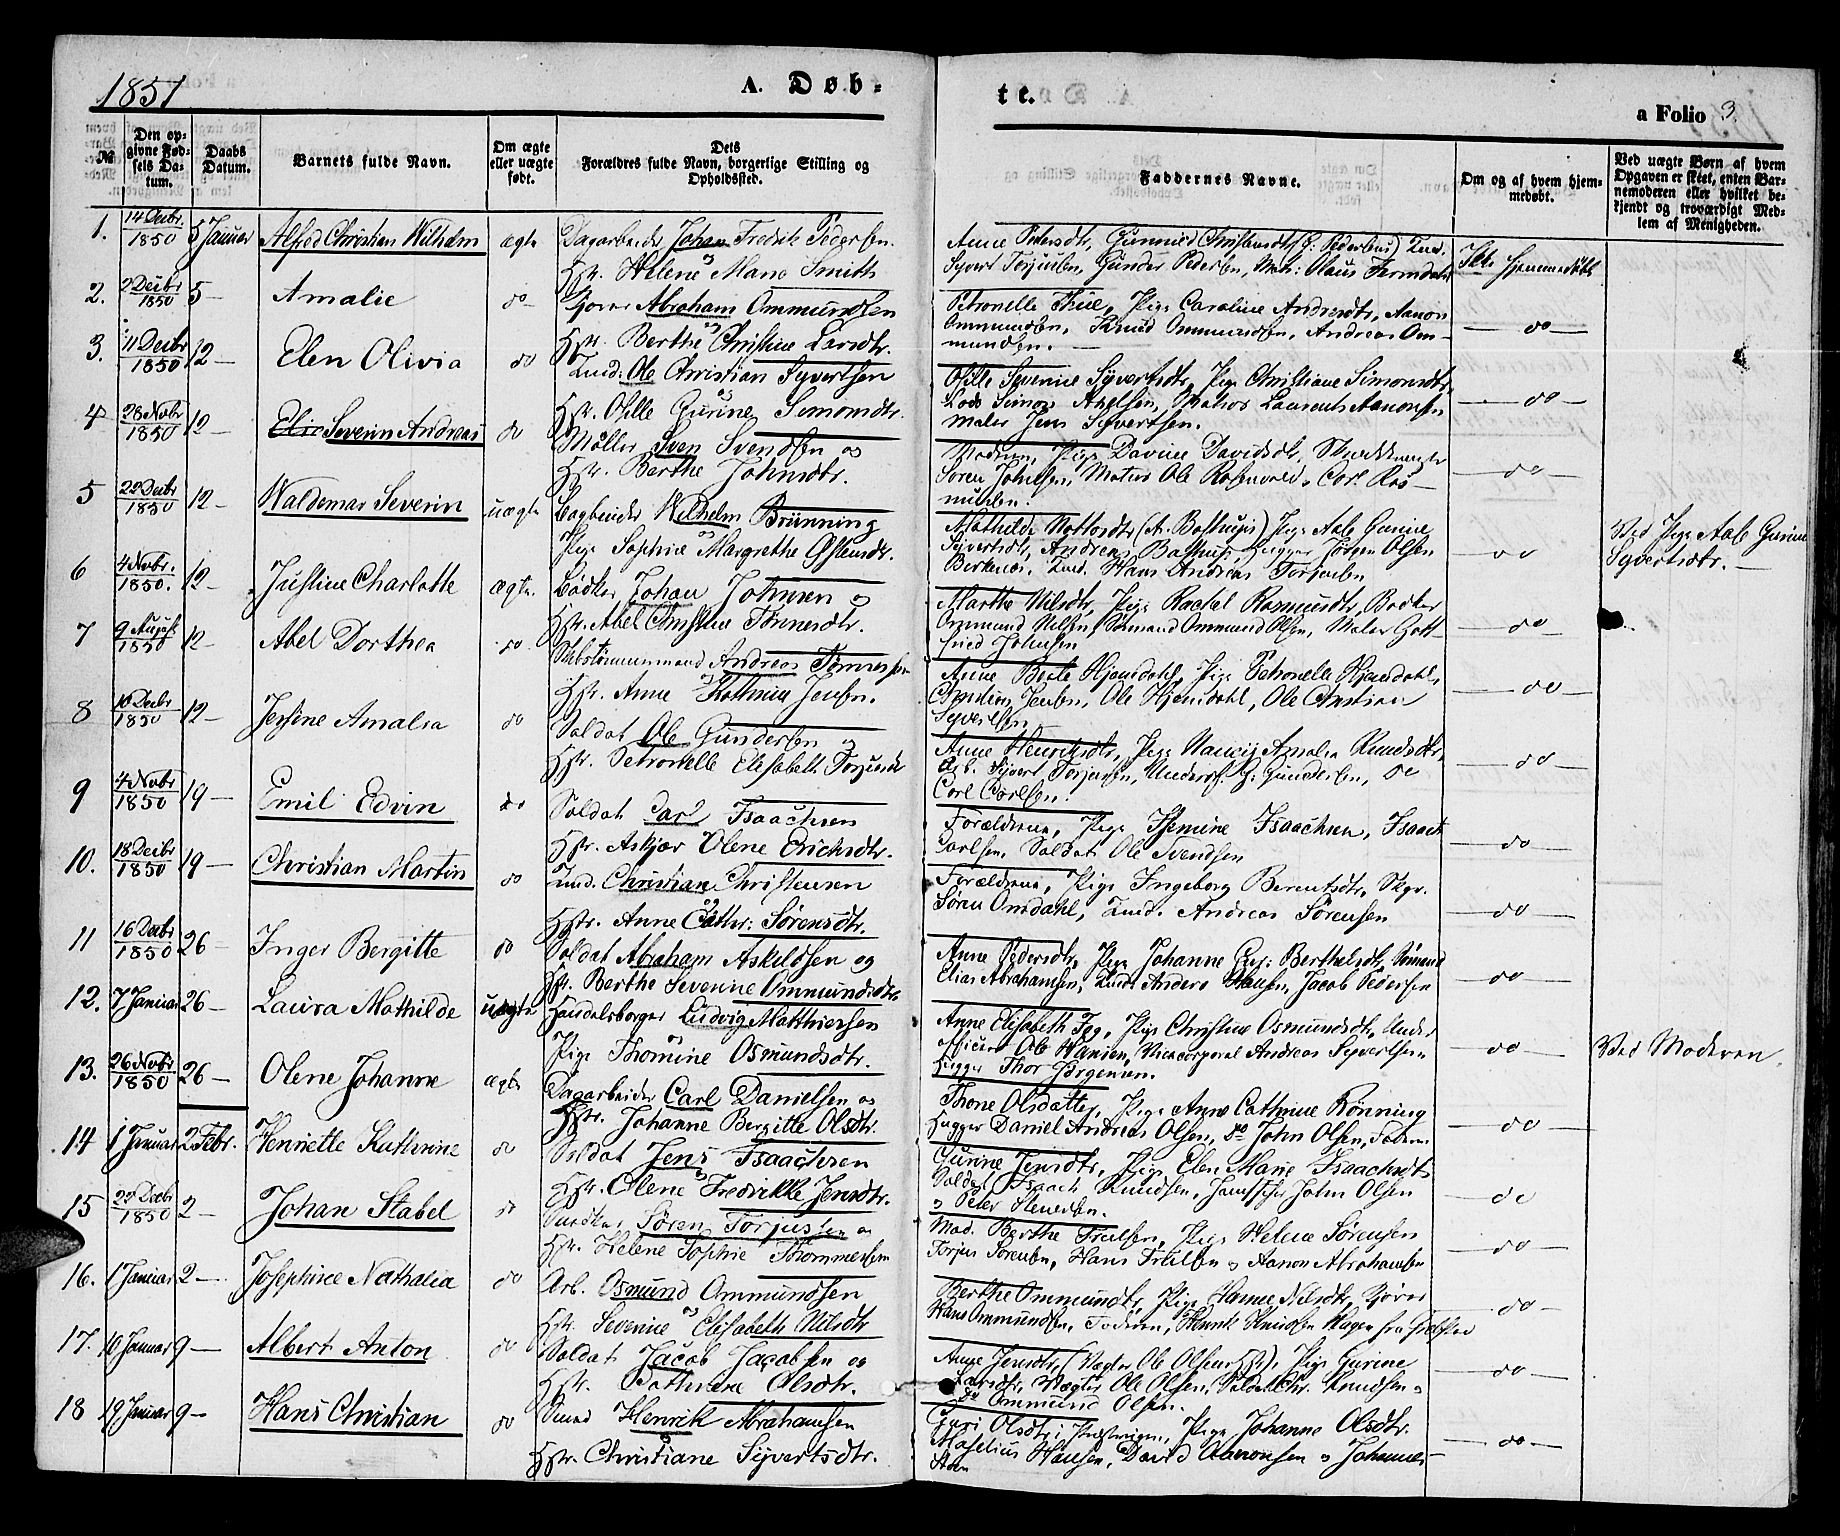 1851
A. Døb-
te.
a Folio 3.
№
Den op-
givne Fød-
sels Da-
tum.
Daabs
Datum.
Barnets fulde Navn.
Om ægte
eller uægte
født.
Dets
Forældres fulde Navn, borgerlige Stilling og
Opholdssted.
Faddernes Navne.
Om og af hvem hjem-
medøbt.
Ved uægte Børn af hvem
Opgaven er skeet, enten Bar-
nemoderen eller hvilket be-
kjendt og troværdigt Med-
lem af Menigheden.
1. 14 Decbr. 1850 5 Januar Alfred Christian Wilhelm ægte Dagarbeider Johan Fredrik Pedersen
Hstr. Helene Marie Smith
Anne Petersdtr,
Syvert Torjusen, Gunder Pedersen, Matr: Olaus Tromdahl
Ikke hjemmedøbt
2. 2 Decbr 1850 5 – Amalie do – Gjører Abraham Ommundsen
Hstr. Berthe Christine Larsdtr.
Petronelle Thue, Pige Caroline Andresdtr, Aanon
Ommundsen, Knud Ommundsen, Andreas Om-
mundsen. –
– do –
3. 11 Decbr 1850 12 – Elen Olivia do Tind: Ole Christian Syvertsen
Hstr. Osille Gurine Simonsdtr.
Osille Severine Syvertsdtr, Pige Christiane Simonsdtr,
Lods Simon Axelsen, Matros Laurents Aanonsen
Maler Jens Syvertsen.
– do –
4 28 Novbr 1850 12 – Severin Andreas do Møller Sven Svendsen og
Hstr. Berthe Johnsdtr.
Moderen, Pige Davine Davidsdtr,
Søren Johnsen, Matros Ole Rosenvold, Carl Ras-
mussen.
– do –
5 22 Decbr 1850 12 – Waldemar Severin uægte Bogbinder Wilhelm Brünning
Pige Sophie Margrethe
Mathilde (A. Bastrups) Pige Aase Gurine
Syvertsdtr, Andreas Bastrup, Hugger Jørgen Olsen
Birkenes, Hans Andreas Torjusen
do
Ved Pige Aase Gurine
Syvertsdtr. –
6 4 Novbr. 1850. 12 – Justine Charlotte ægte. Bødker Johan Johnsen og
Hstr. Abel Christine Tønnesdtr.
Marthe Nilsdtr, Pige Rachel Rasmusdtr, Bødker
Ommund Nilsen, Sømand Ommund Olsen, Maler Gott-
fried Johnsen
– do –
7 9 August 1850 12 – Abel Dorthea do. Skibstømmermand Andreas Tønnessen
Hstr. Anne Kathrine Jensen.
Anne Berte Hjemdahl, Pige Petronelle Hjemdahl,
Christen Jensen, Ole Hjemdahl, Ole Christian
Syvertsen
– do –
8 10 Decbr 1850 12 – Jensine Amalia do Soldat Ole Gundersen og
Hstr. Petronelle Elisabeth Torjusdtr
Anne Henriksdtr, Pige Nancy Amalia Knudsdtr,
Arb. Syvert Torjusen, Underof. G. Gundersen, do
Carl Carlsen.
– do –
9 4 Novbr 1850 19 – Emil Edvin do Soldat Carl Isaachsen
Hstr. Askjær Olene Ericksdtr.
Forældrene, Pige Isaachsen, Isaach
Carlsen, Soldat Ole Svendsen
– do –
10. 18 Decbr 1850 19 – Christian Martin do Tind. Christian Christensen
Hstr. Anne Cathr: Sørensdtr.
Forældrene, Pige Ingeborg Berentsdtr,
Søren Omdahl, Andreas Sørensen
– do –
11 16 Decbr 1850 26 – Inger Bergitte do Soldat Abraham Askildsen og
Hstr. Berthe Severine Ommundsdtr
Anne Pedersdtr, Pige Johanne Berthelsdtr, Sømand
Elias Abrahamsen, Anders Hansen, Jacob Pedersen
– do –
12. 7 Januar 26 – Laura Mathilde uægte Handelsborger Ludvig Matthiesen
Pige Thomine Osmundsdtr.
Anne Elisabeth Fog, Pige Christine Osmundsdtr, Under-
officer Ole Hansen, Vicecorporal Andreas Syvertsen
Hugger Thor Jørgensen.
– do –
Ved Moderen
13. 26 Novbr 1850 26 – Olene Johanne ægte Dagarbeider Carl Danielsen og
Hstr. Johanne Bergitte Olsdtr.
Thone Olsdatter, Pige Anne Cathrine Rønning
Hugger Daniel Andreas Olsen, do John Olsen, Faderen
– do –
14 1 Januar 2 Febr. Henriette Kathrine do Soldat Jens Isaachsen
Hstr. Olene Fredrikke Jensdtr.
Gurine Jensdtr, Pige Elen Marie Isaachsdtr
Soldat Isaach Knudsen, John Olsen
– do
15 22 Decbr 1850 2 – Johan Stabel do Søren Torjussen og
Hstr. Helene Sophie Thommesen
Mad. Berthe Truelsen, Pige Helene Sørensen
Torjus Sørensen, Hans Truelsen og Aanon Abrahamsen
– do –
16. 1 Januar 2 –. Josephine Nathalia do Arb. Osmund Ommundsen
Hstr. Severine Elisabeth Nilsdtr
Berthe Ommundsdtr, Pige Hanne Nilsdtr, Gjører
Hans Ommundsen, Faderen, Henrik Knudsen Hagen fra
– do –
17. 10 Januar 9 – Albert Anton do Soldat Jacob Jacobsen og
Hstr. Cathrine Olsdtr.
Anne Jensdtr, (Vægter Ole Olsens Hstr), Pige Gurine
Larsdtr, Vægter Ole Olsen, Soldat Chr. Knudsen og
do Ommund Olsen.
– do –
18 19 Januar 9 – Hans Christian do Smed Henrik Abrahamsen
Hstr. Christiane Syvertsdtr.
Guri Olsdtr, Pige Johanne Olsdtr.
Hansen, David Aanonsen og Johannes
– do –